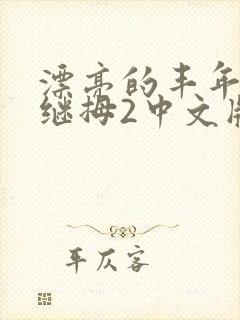 漂亮的丰年
继拇2中文版
客